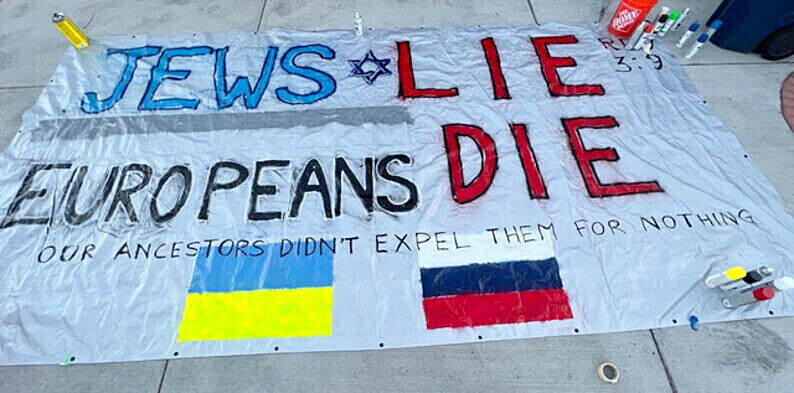 JEWS LIE
3:9
EUROPEANS DIE
OUR ANCESTORS DIDN'T EXPEL THEM FOR NOTHING
HOME